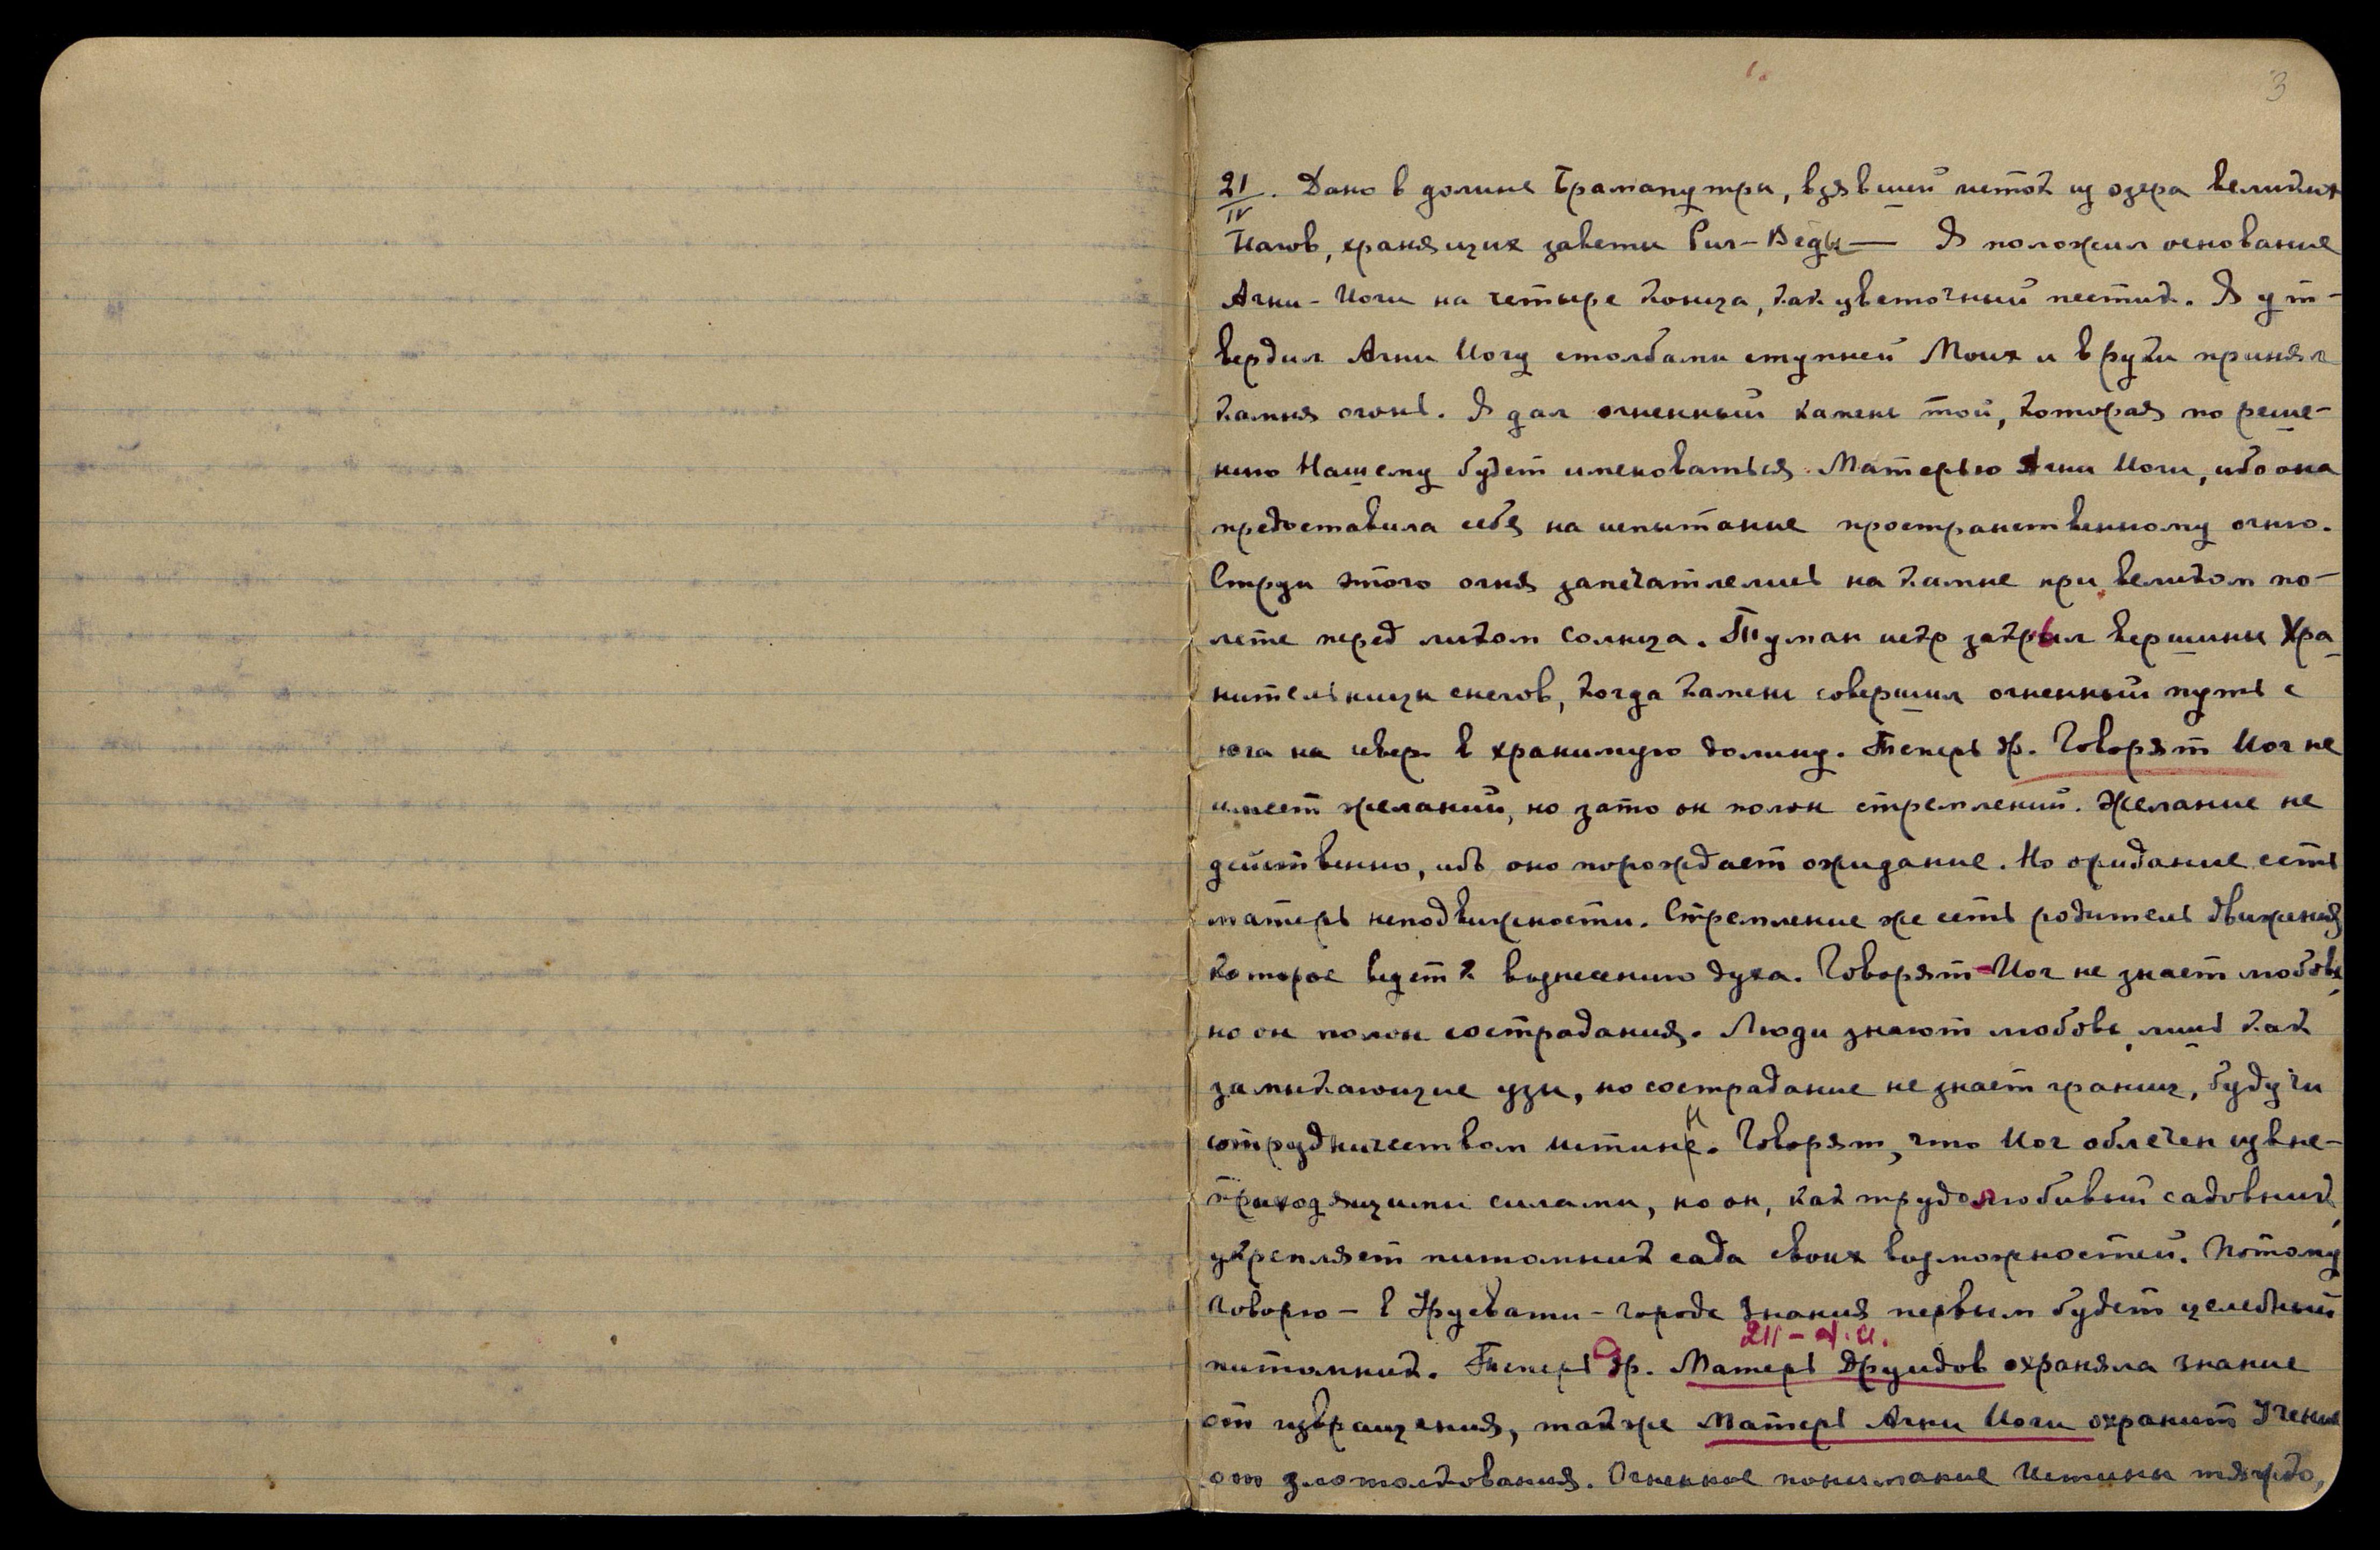 1.
3
21/IV. Дано в долине Брамапутры, взявшей исток из озера великих
Нагов, хранящих заветы Риг-Веды — Я положил основание
Агни-Йоги на четыре конца, как цветочный пестик. Я ут-
вердил Агни Йогу столбами ступней Моих и в руки принял
камня огонь. Я дал огненный камень той, которая по реше-
нию Нашему будет именоваться Матерью Агни Йоги, ибо она
предоставила себя на испытание пространственному огню.
Струи этого огня запечатлелись на камне при великом по-
лете перед ликом Солнца. Туман искр закрыл вершины Хра
нительницы снегов, когда камень совершил огненный путь с
юга на север в хранимую долину. Теперь др. Говорят Йог не
имеет желаний, но зато он полон стремлений. Желание не
действенно, ибо оно порождает ожидание. Но ожидание есть
матерь неподвижности. Стремление же есть родитель движения
которое ведет к вознесению духа. Говорят - Йог не знает любовь,
но он полон сострадания. Люди знают любовь, лишь как
замыкающие узы, но сострадание не знает границ, будучи
сотрудничеством истины. Говорят, что Йог облечен извне-
приходящими силами, но он, как трудолюбивый садовник,
укрепляет питомник сада своих возможностей. Потому
говорю - в Урусвати - городе Знания первым будет целебный
211 - А.И.
питомник. Теперь др. Матерь Друидов охраняла знание
от извращения, также Матерь Агни Йоги охранит Учение
от злотолкования. Огненное понимание Истины тяжко,